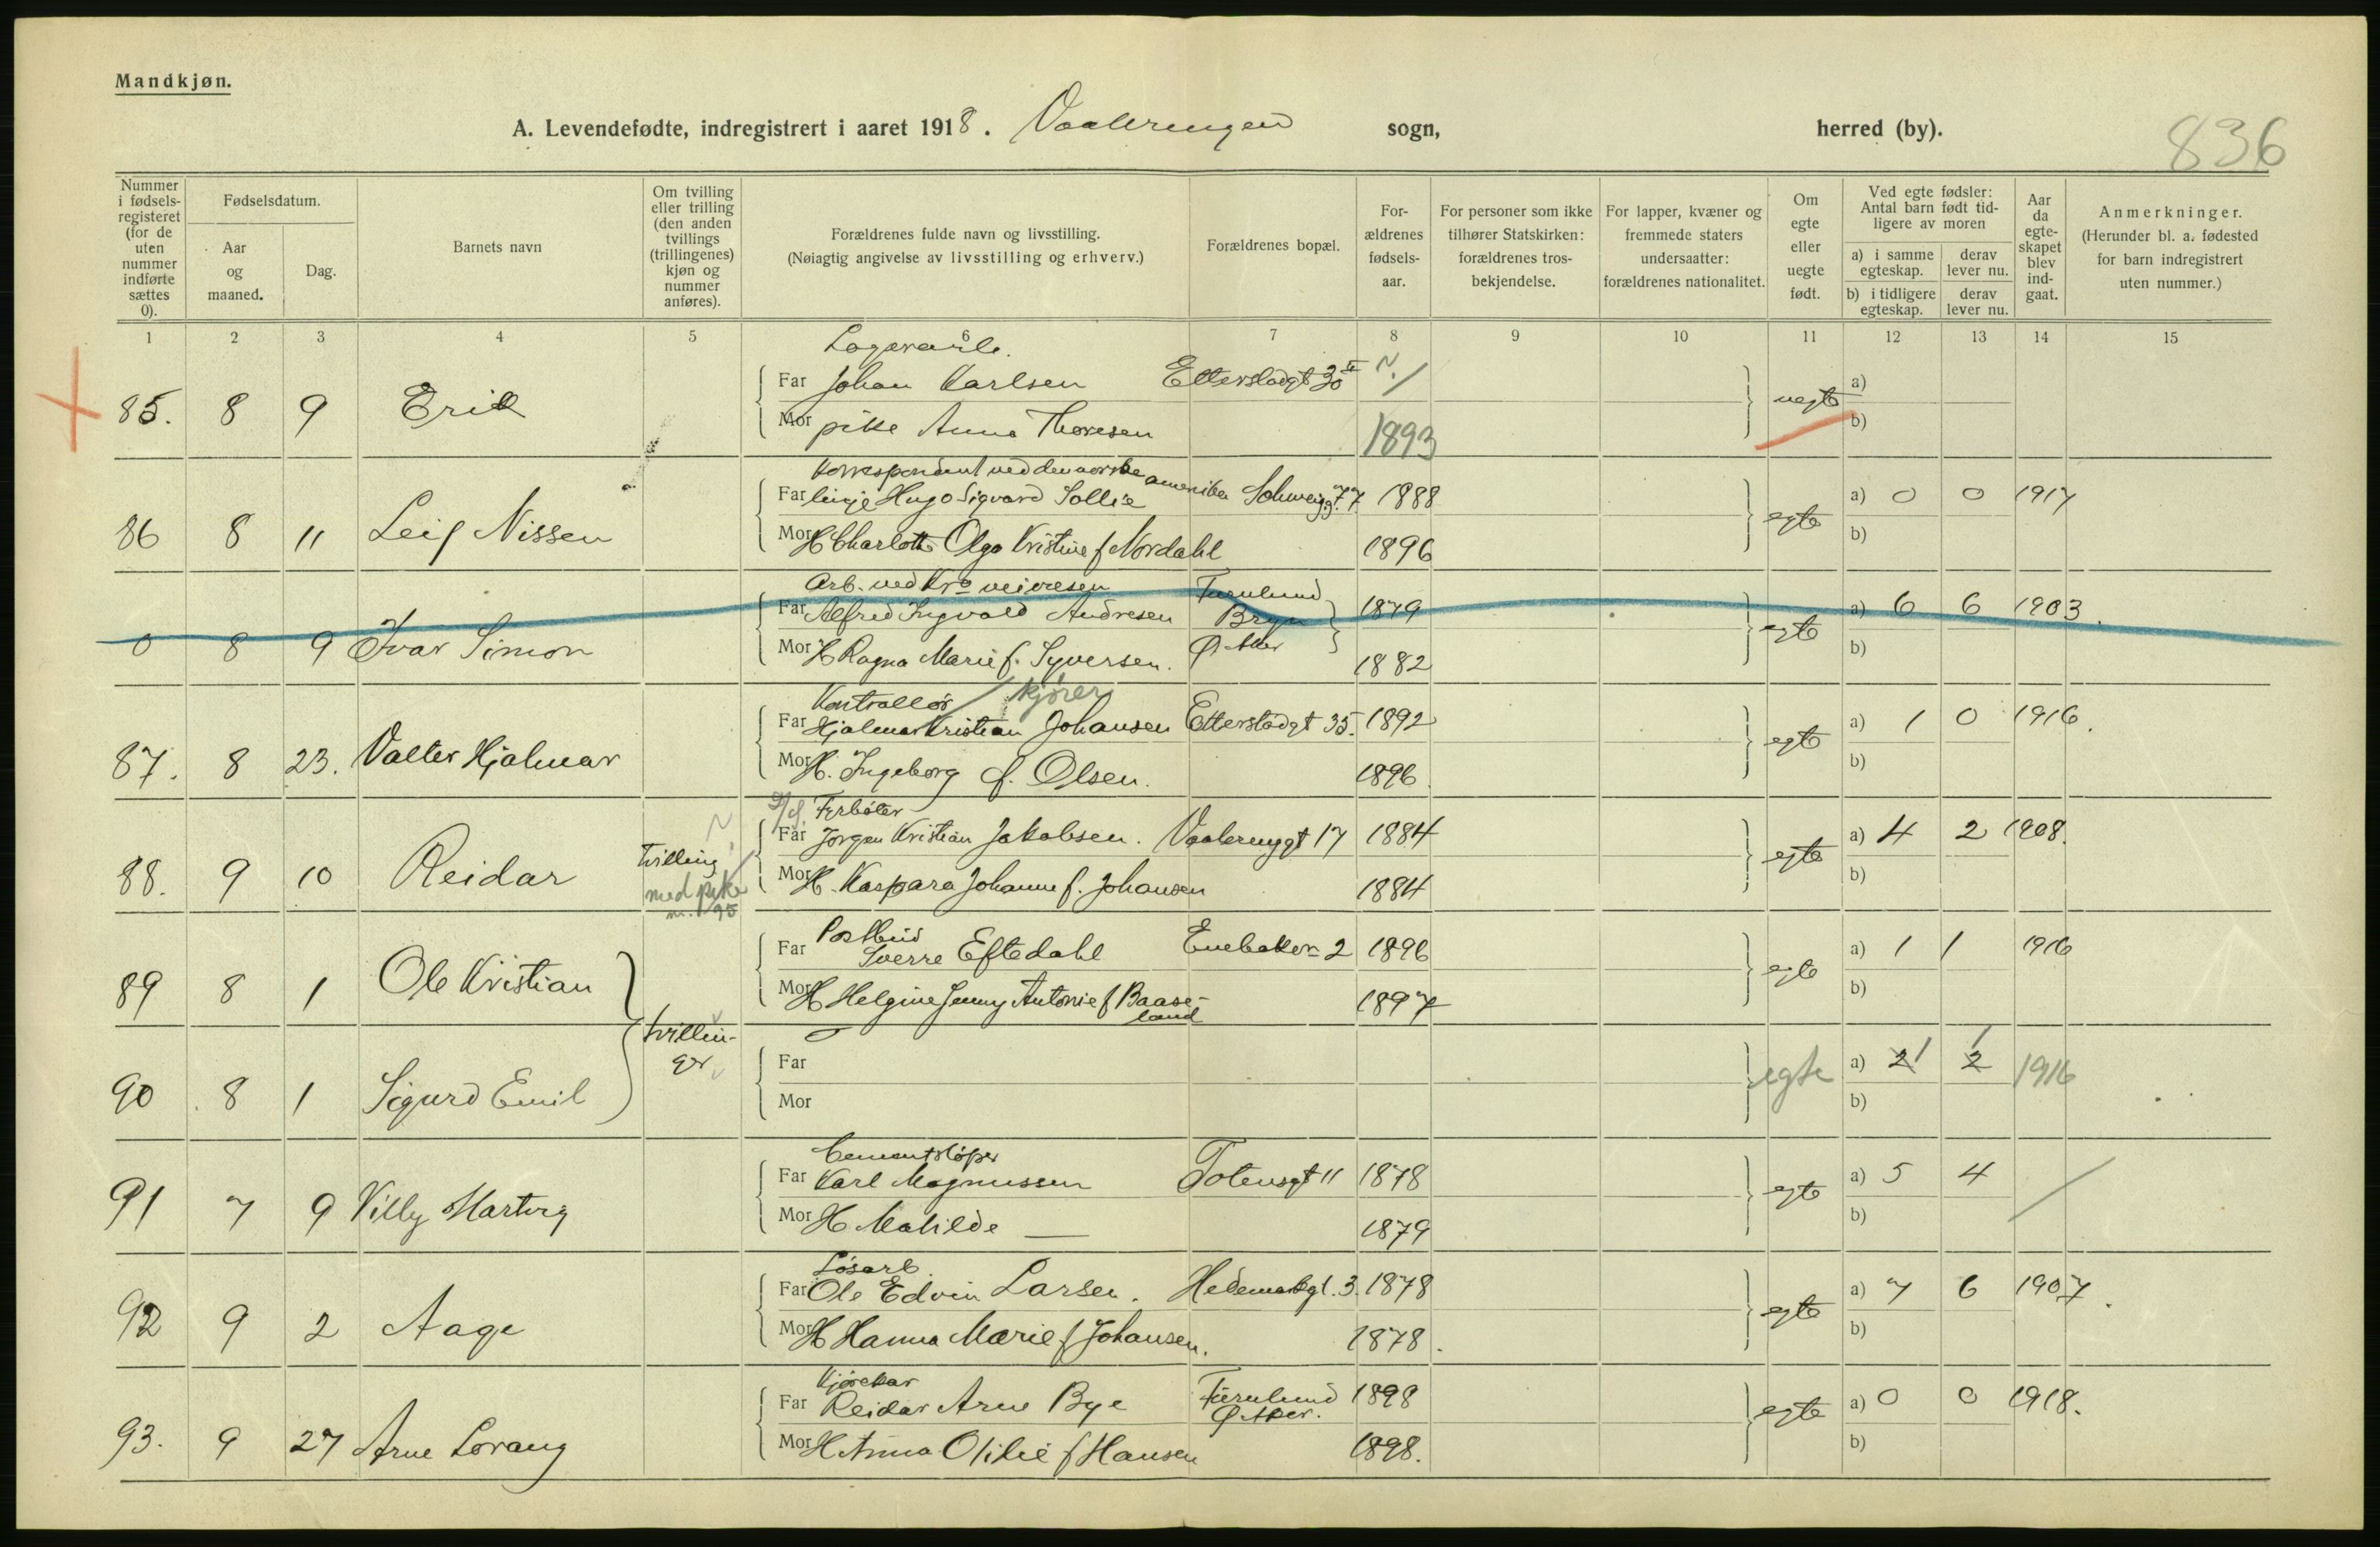 Mandkjøn.
A. Levendefødte, indregistrert i aaret 1918. Vaalerengen sogn, herred (by).
836
Nummer i fødsels-registeret (for de uten nummer indførte sættes 0).
Fødselsdatum.
Aar og maaned.
Dag.
Barnets navn
Om tvilling eller trilling (den anden tvillings (trillingenes) kjøn og nummer anføres).
Forældrenes fulde navn og livsstilling.
(Nøiagtig angivelse av livsstilling og erhverv.)
Forældrenes bopæl.
For-ældrenes fødsels-aar.
For personer som ikke tilhører Statskirken: forældrenes tros-bekjendelse.
For lapper, kvæner og fremmede staters undersaatter: forældrenes nationalitet.
Om egte eller uegte født.
Ved egte fødsler:
Antal barn født tid-ligere av moren
a) i samme egteskap.
derav lever nu.
b) i tidligere egteskap.
derav lever nu.
Aar da egte-skapet blev ind-gaat.
Anmerkninger.
(Herunder bl. a. fødested for barn indregistrert uten nummer.)
1 2 3 4 5 6 7 8 9 10 11 12 13 14 15
85. 8 9 Erik
Far Johan Karlsen Etterstadgt 30
Mor pike Anna Thoresen 1893
uegte a)
b)
Korrespondent ved den norske amerika
86 8 11 Leif Nissen
Far linje Hugo Sigvard Sollie Schweigg. 77 1888
Mor H Charlotte Olga Kristine f Nordahl 1896
egte a) 0 0 1917
b)
Arb. ved Kra veivesen
0 8 9 Ivar Simon
Far Alfred Ingvald Andresen Furulund Bryn Ø Aker 1879
Mor H Ragna Marie f. Syversen. 1882
egte a) 6 6 1903
b)
Kontrollør kjører
87. 8 23. Valter Hjalmar
Far Hjalmar Kristian Johansen Etterstadgt 35. 1892
Mor H. Ingeborg f. Olsen. 1896
egte a) 1 0 1916.
b)
Fyrbøter
88. 9 10 Reidar Tvilling med pike nr. 95
Far Jørgen Kristian Jakobsen. Vaalerenggt 17 1884
Mor H. Kaspara Johanne f. Johansen 1884
egte a) 4 2 1908.
b)
Postbud
89 8 1 Ole Kristian
Far Sverre Eftedahl Enebakkv 2 1896
Mor H Helgine Jenny Antonie f Baase-land 1897
egte a) 1 1 1916
b)
90 8 1 Sigurd Emil tvillin-ger
Far
Mor
egte a) 2 1 2 1 1916
b)
Cementstøper
91 7 9 Villy Hartvig
Far Karl Magnussen Totensgt 11 1878
Mor H Matilde — 1879
egte a) 5 4
b)
Løsarb.
92 9 2 Aage
Far Ole Edvin Larsen. Hedemarkgt. 3. 1878
Mor H Hanna Marie f Johansen. 1878.
egte a) 7 6 1907.
b)
Kjørekar
93. 9 27 Arne Lorang
Far Reidar Arne Bye Furulund Ø Aker. 1898
Mor H Anna Otilie f Hansen 1898.
egte a) 0 0 1918.
b)